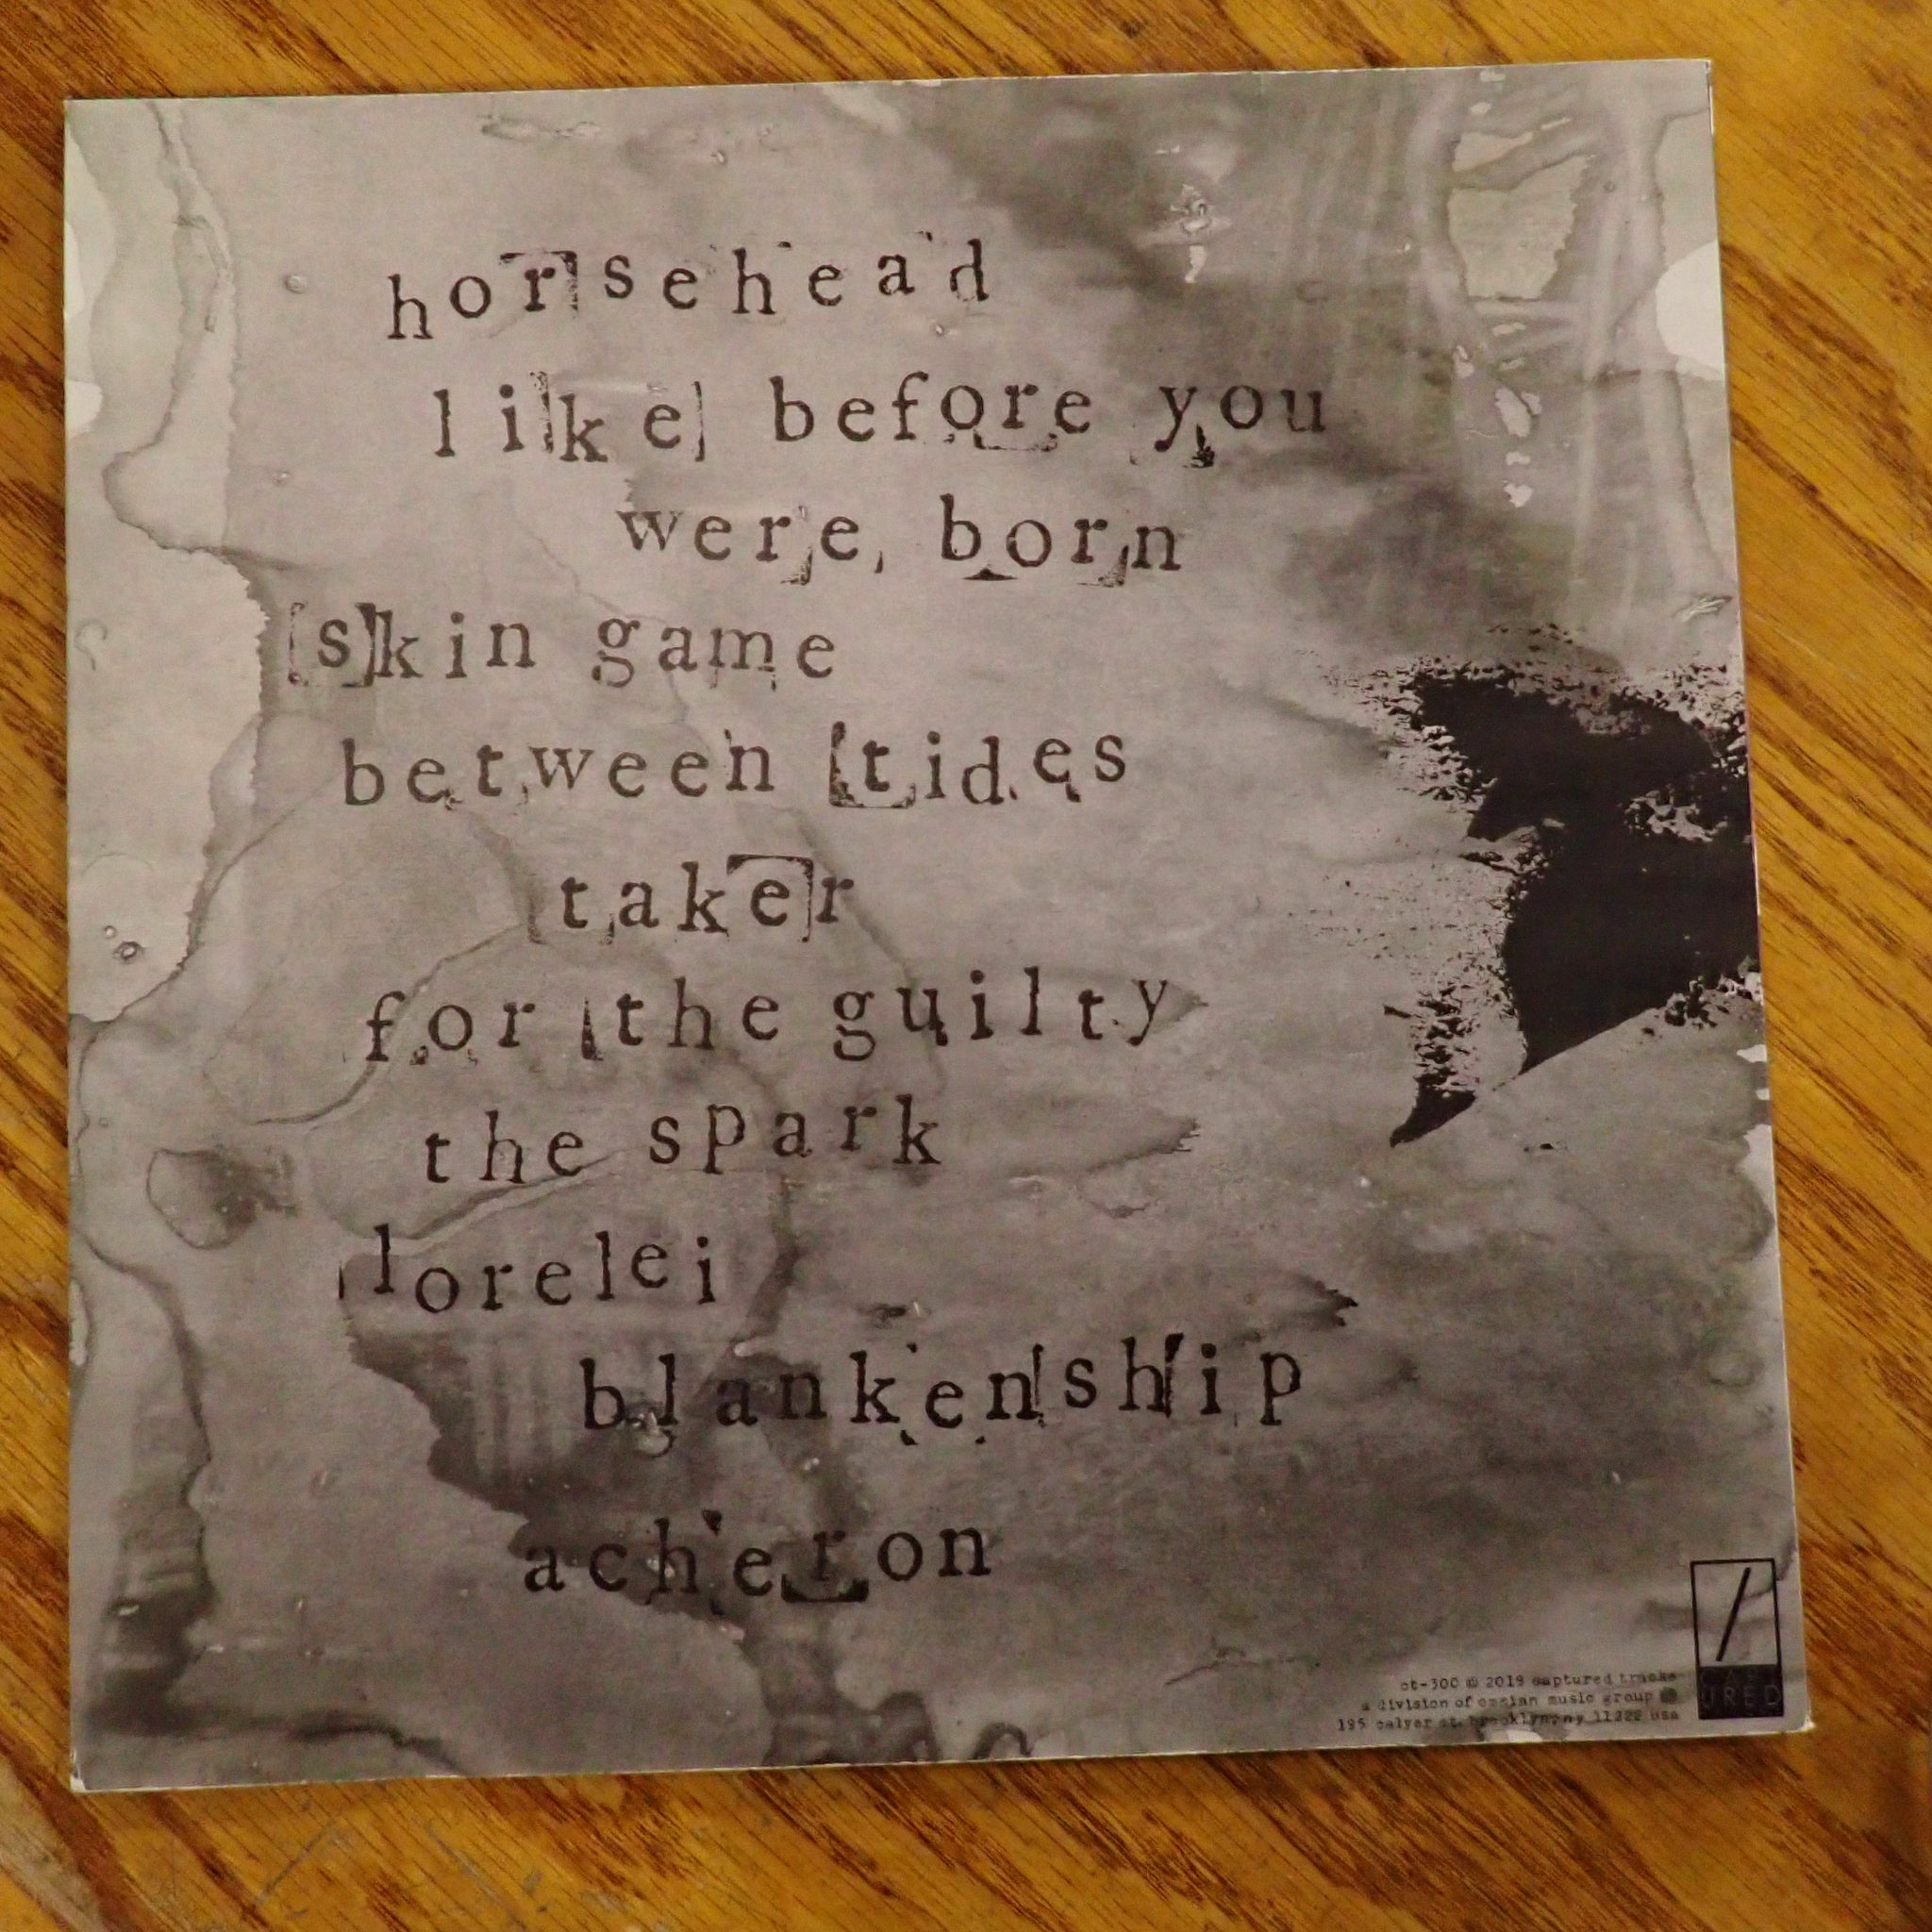 horsehead
like before you
were born
skin game
between tides
taker
for the guilty
the spark
lorelei
blankenship
acheron
ct-300 ℗ 2019 captured tracks
a division of omnian music group
195 calyer st. brooklyn, ny 11222 usa
URED